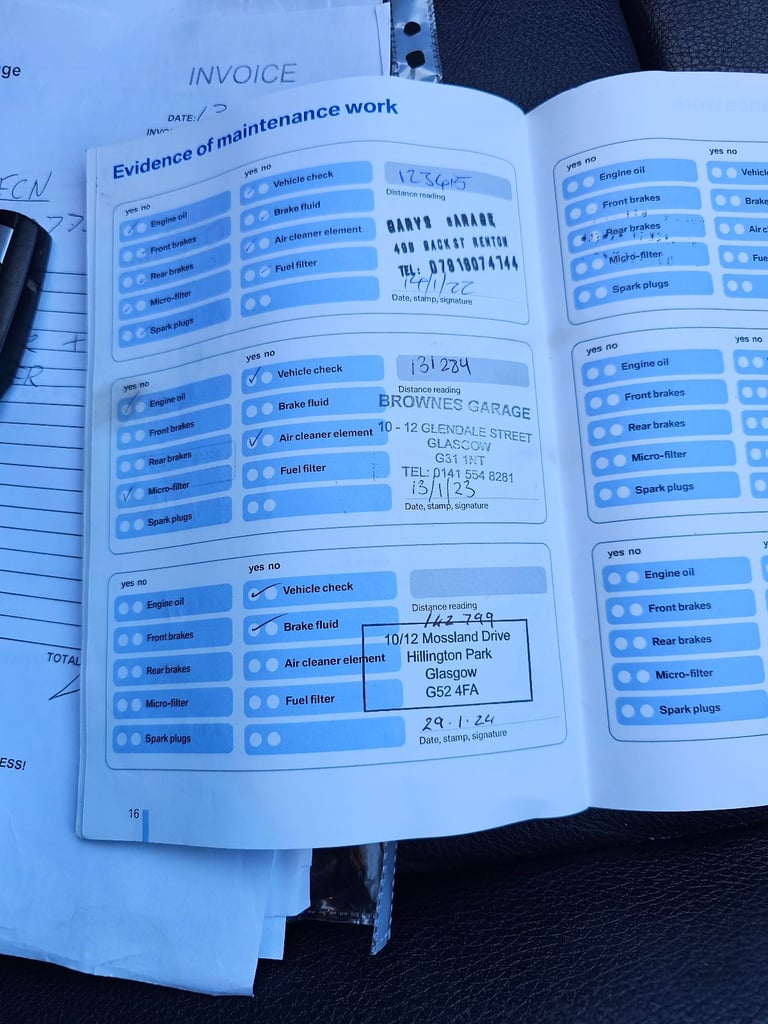 ge
INVOICE
DATE:
ECN
TOTAL
ESS!
Evidence of maintenance work
yes no
Engine oil
Front brakes
Rear brakes
Micro-filter
Spark plugs
yes no
Vehicle check
Brake fluid
Air cleaner element
Fuel filter
123415
Distance reading
GARYS GARAGE
49B BACK ST RENTON
TEL: 07818074744
14/1/22
Date, stamp, signature
yes no
Engine oil
Front brakes
Rear brakes
Micro-filter
Spark plugs
yes no
Vehicle check
Brake fluid
Air cleaner element
Fuel filter
131284
Distance reading
BROWNES GARAGE
10 - 12 GLENDALE STREET
GLASGOW
G31 1NT
TEL: 0141 554 8281
13/1/23
Date, stamp, signature
yes no
Engine oil
Front brakes
Rear brakes
Micro-filter
Spark plugs
yes no
Vehicle check
Brake fluid
Air cleaner element
Fuel filter
Distance reading
142 799
10/12 Mossland Drive
Hillington Park
Glasgow
G52 4FA
29.1.24
Date, stamp, signature
16
yes no
Engine oil
Front brakes
Rear brakes
Micro-filter
Spark plugs
yes no
Vehicl
Brake
Air c
Fue
yes no
Engine oil
Front brakes
Rear brakes
Micro-filter
Spark plugs
yes no
yes no
Engine oil
Front brakes
Rear brakes
Micro-filter
Spark plugs